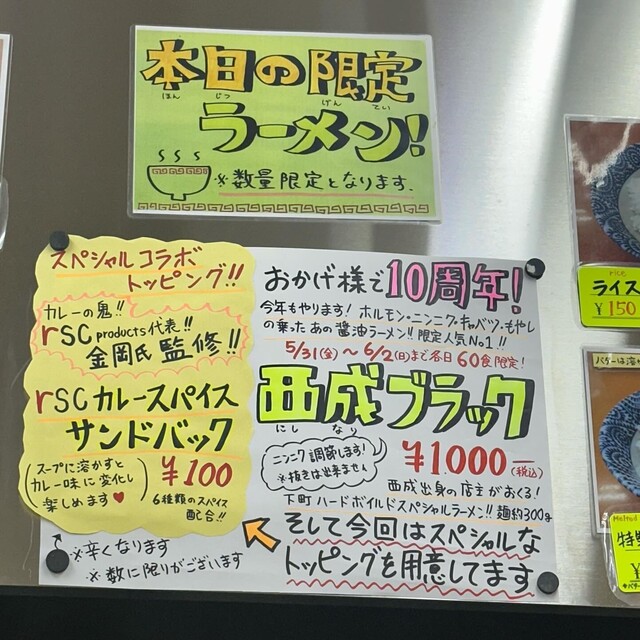 本日の限定
ほん じつ げん てい
ラーメン!
※数量限定となります.
スペシャルコラボ
トッピング!!
カレーの鬼!!
rSC products代表!!
金岡氏 監修!!
rSCカレースパイス
サンドバック
(スープに溶かすと
カレー味に変化し
楽しめます♥)
¥100
6種類のスパイス
配合!!
※辛くなります
※数に限りがございます
おかげ様で10周年!
今年もやります! ホルモン・ニンニク・キャベツ・もやし
の乗ったあの醤油ラーメン!! 限定人気No1!!
5/31(金)〜6/2(日)まで各日60食限定!
西成ブラック
にし なり
ニンニク調節します!
※抜きは出来ません
¥1000ー(税込)
西成出身の店主がおくる!
下町ハードボイルドスペシャルラーメン!! 麺約300g
そして今回はスペシャルな
トッピングを用意してます
rice
ライス
¥150
バターは溶
Melted
特製
¥